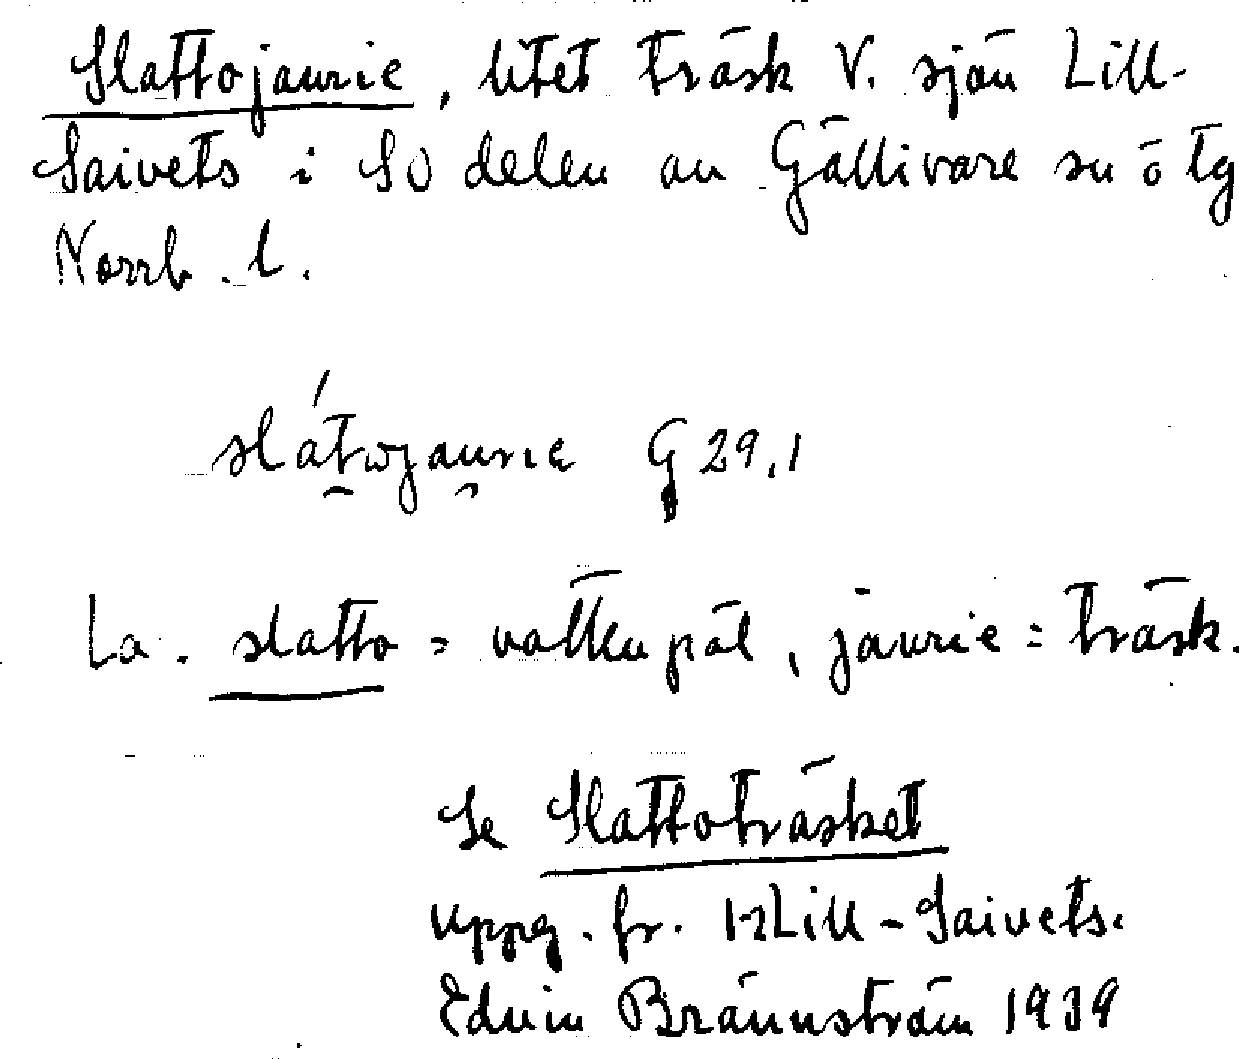 Slattojaurie, litet träsk V. sjön Lill-
Saivets i SO delen av Gällivare sn o tg
Norrb. l.
slátwjaurie G 29,1
La. slatto = vattenpöl, jaurie = träsk.
Se Slattoträsket
uppg. fr. Lill-Saivets.
Edvin Brännström 1939